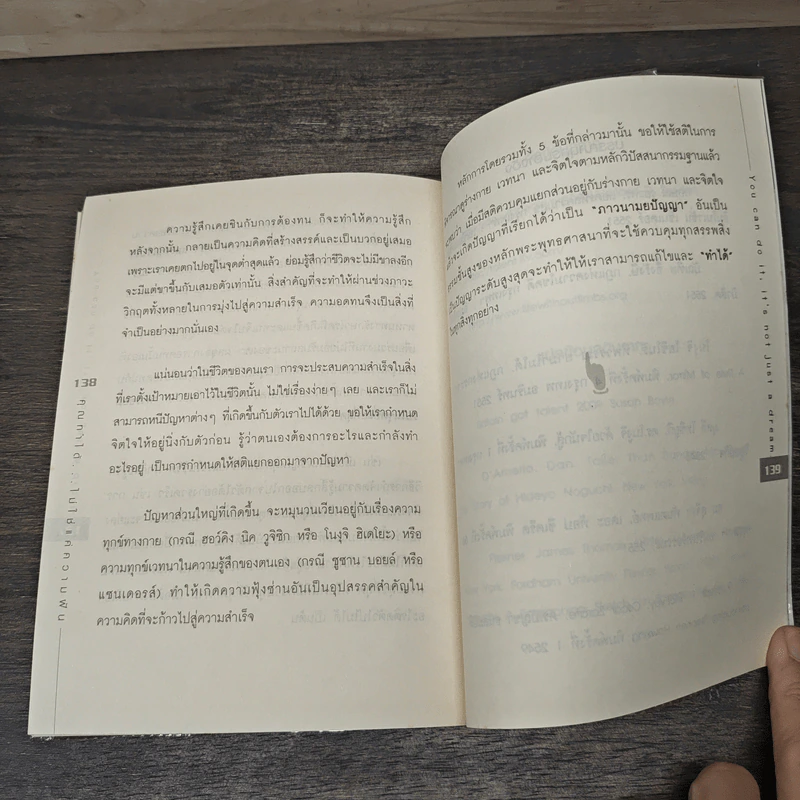 ความรู้สึกเคยชินกับการต้องทน ก็จะทำให้ความรู้สึก
หลังจากนั้น กลายเป็นความคิดที่สร้างสรรค์และเป็นบวกอยู่เสมอ
เพราะเราเคยตกไปอยู่ในจุดต่ำสุดแล้ว ย่อมรู้สึกว่าชีวิตจะไม่มีขาลงอีก
จะมีแต่ขาขึ้นกับเสมอตัวเท่านั้น สิ่งสำคัญที่จะทำให้ผ่านช่วงภาวะ
วิกฤตทั้งหลายในการมุ่งไปสู่ความสำเร็จ ความอดทนจึงเป็นสิ่งที่
จำเป็นอย่างมากนั่นเอง
แน่นอนว่าในชีวิตของคนเรา การจะประสบความสำเร็จในสิ่ง
ที่เราตั้งเป้าหมายเอาไว้ในชีวิตนั้น ไม่ใช่เรื่องง่ายๆ เลย และเราก็ไม่
สามารถหนีปัญหาต่างๆ ที่เกิดขึ้นกับตัวเราไปได้ด้วย ขอให้เรากำหนด
จิตใจให้อยู่นิ่งกับตัวก่อน รู้ว่าตนเองต้องการอะไรและกำลังทำ
อะไรอยู่ เป็นการกำหนดให้สติแยกออกมาจากปัญหา
ปัญหาส่วนใหญ่ที่เกิดขึ้น จะหมุนวนเวียนอยู่กับเรื่องความ
ทุกข์ทางกาย (กรณี ฮอว์คิง นิค วูจิซิก หรือ โนงุจิ ฮิเดโยะ) หรือ
ความทุกข์เวทนาในความรู้สึกของตนเอง (กรณี ซูซาน บอยล์ หรือ
แซนเดอรส์) ทำให้เกิดความฟุ้งซ่านอันเป็นอุปสรรคสำคัญใน
ความคิดที่จะก้าวไปสู่ความสำเร็จ
138
คุณทำได้...ไม่ใช่แค่ความฝัน
หลักการโดยรวมทั้ง 5 ข้อที่กล่าวมานั้น ขอให้ใช้สติในการ
ดูร่างกาย เวทนา และจิตใจตามหลักวิปัสสนากรรมฐานแล้ว
เมื่อมีสติควบคุมแยกส่วนอยู่กับร่างกาย เวทนา และจิตใจ
จะเกิดปัญญาที่เรียกได้ว่าเป็น "ภาวนามยปัญญา" อันเป็น
ชั้นสูงของหลักพระพุทธศาสนาที่จะใช้ควบคุมทุกสรรพสิ่ง
ปัญญาระดับสูงสุดจะทำให้ให้เราสามารถแก้ไขและ "ทำได้"
ทุกสิ่งทุกอย่าง
You can do it. it's not just a dream
139